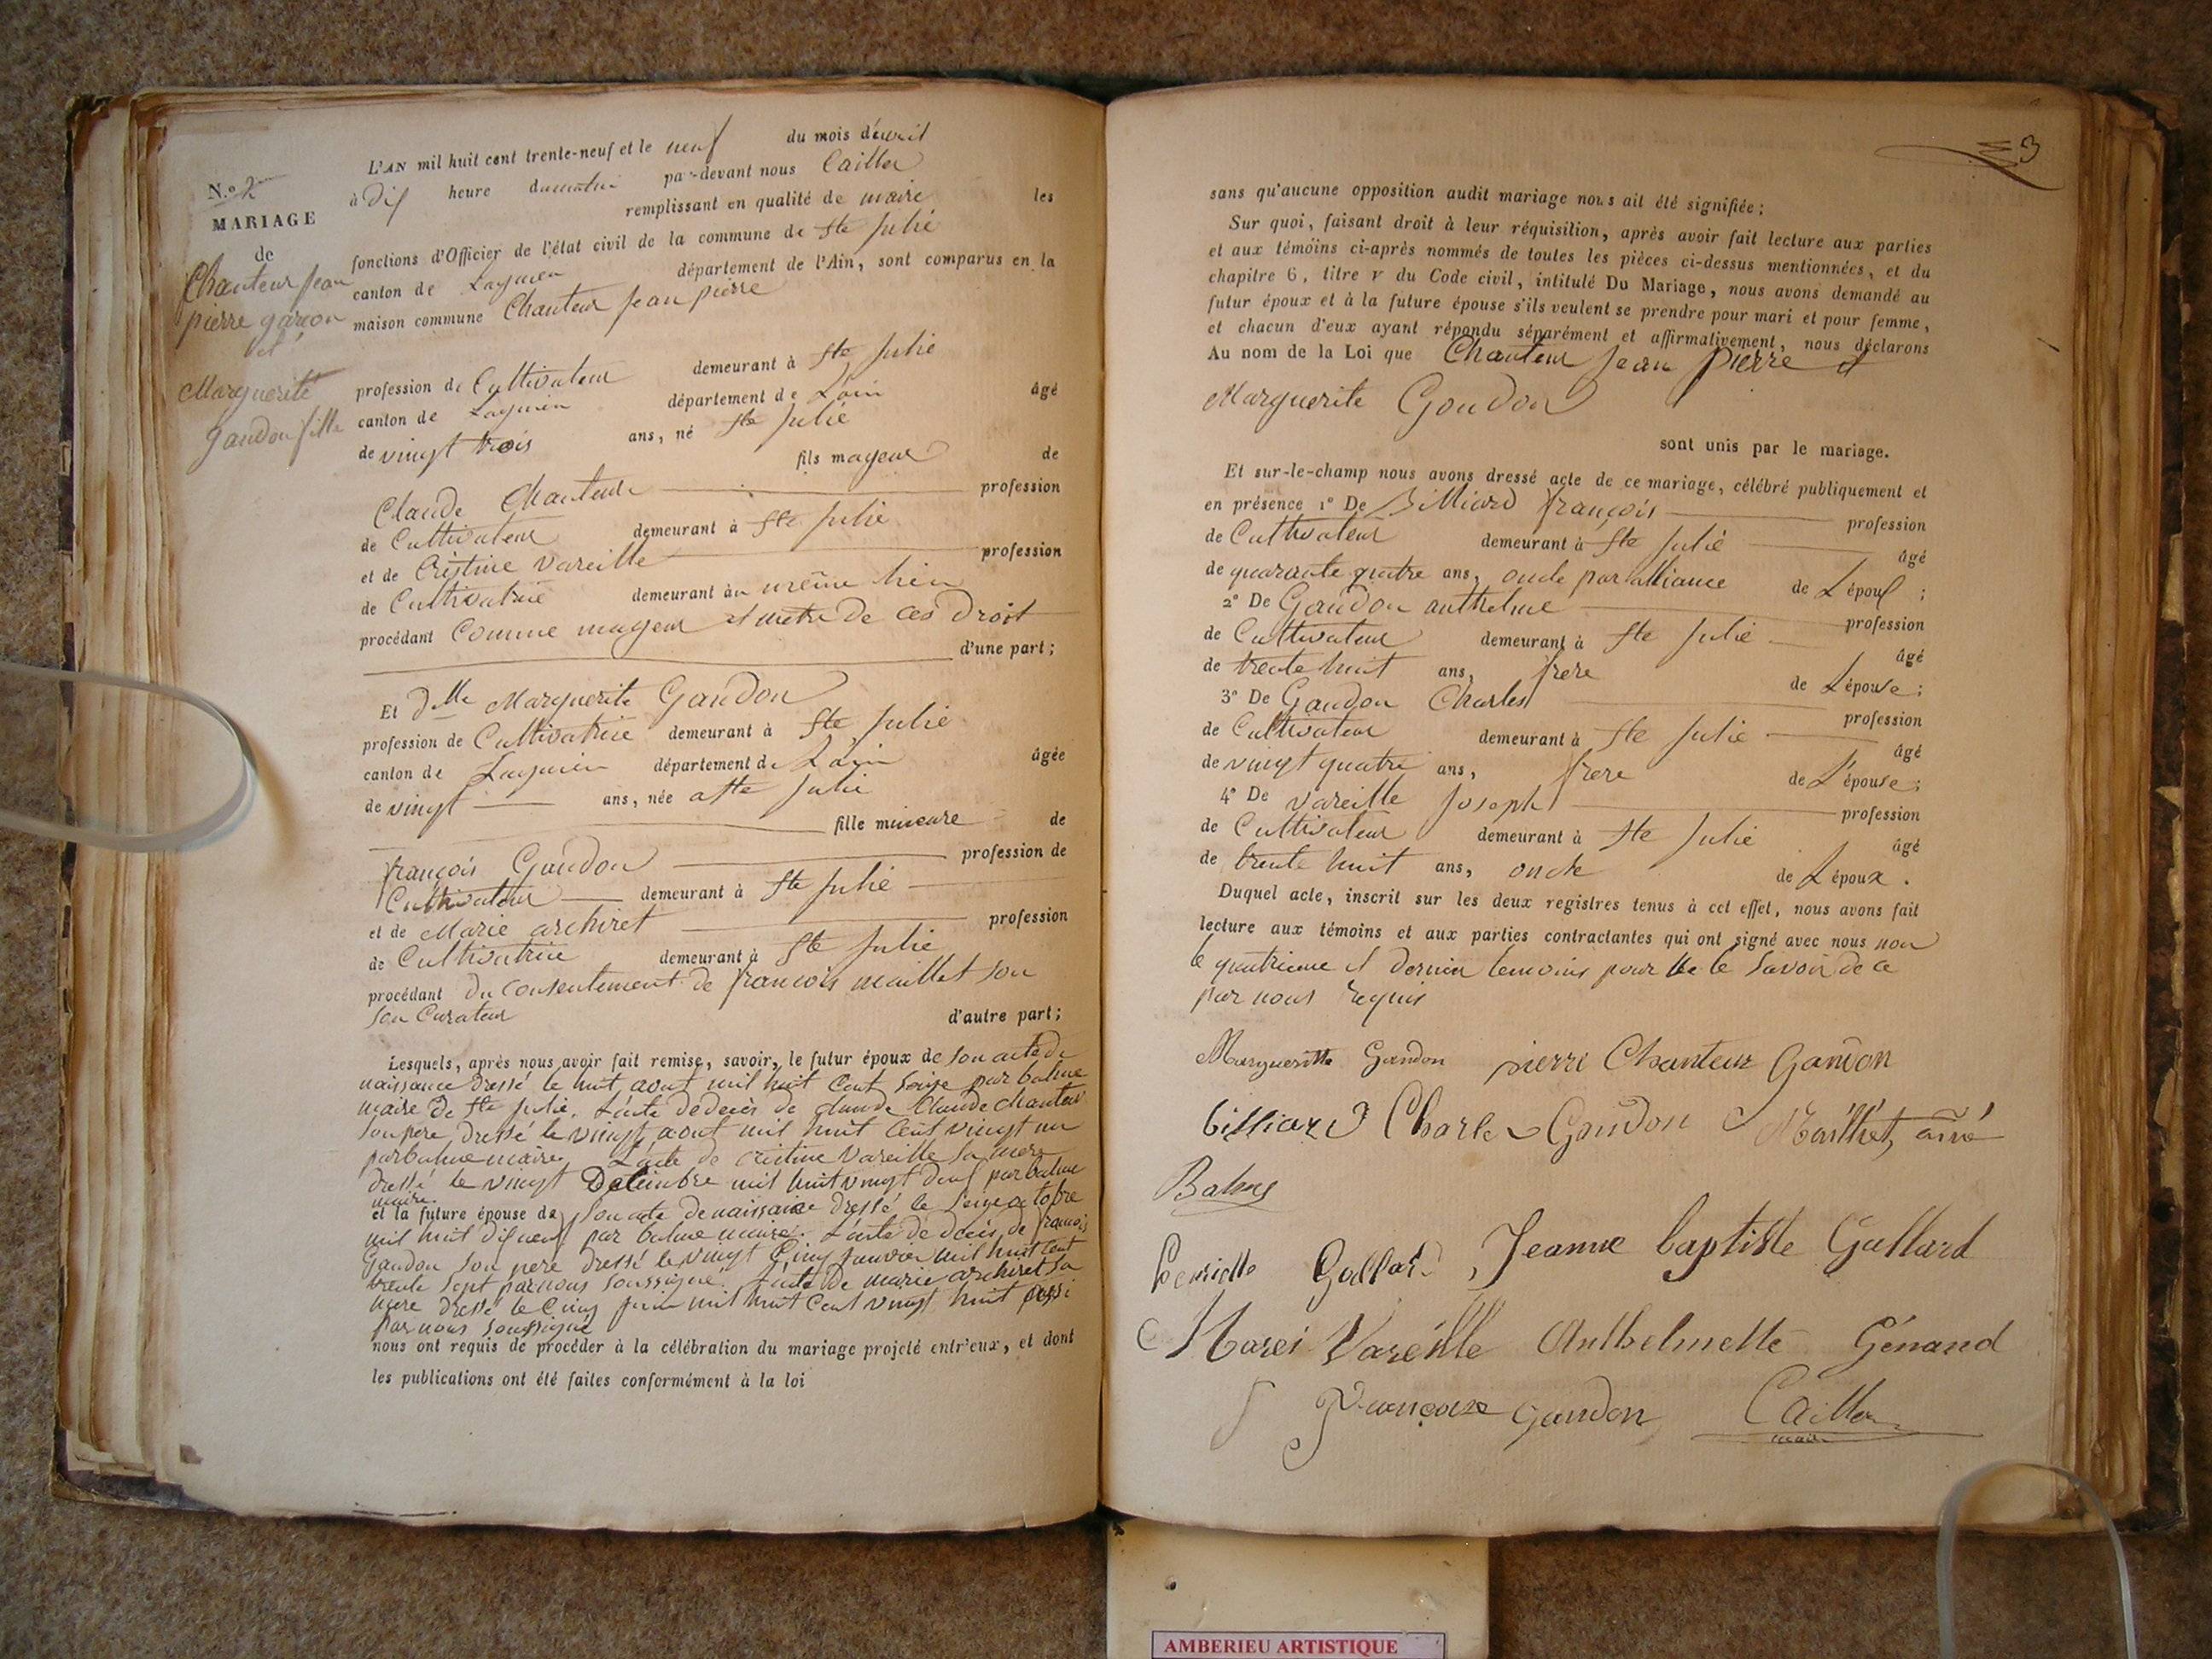 L'AN mil huit cent trente-neuf et le neuf du mois d'avril
à dix heure du matin par-devant nous Cailler
remplissant en qualité de maire les
fonctions d'Officier de l'état civil de la commune de Ste Julie
canton de Lagnieu département de l'Ain, sont comparus en la
maison commune Chanteur Jean pierre
N.º 2
MARIAGE
de
Chanteur Jean
pierre garcon
et
Marguerite
Gandon fille
profession de Cultivateur demeurant à Ste Julie
canton de Lagnieu département de L'ain âgé
de vingt trois ans, né Ste Julie
fils mageur de
Claude Chanteur profession
de Cultivateur demeurant à Ste Julie
et de Cristine Vareille profession
de Cultivatrice demeurant au même lieu
procédant Comme mageur et metre de ces droit
d'une part;
Et dlle Marguerite Gandon
profession de Cultivatrice demeurant à Ste Julie
canton de Lagnieu département de L'ain âgée
de vingt ans, née a Ste Julie
fille mineure de
françois Gandon profession de
Cultivateur demeurant à Ste Julie
et de Marie archiret profession
de Cultivatrice demeurant à Ste Julie
procédant du consentement de françois maillet son
son Curateur d'autre part;
Lesquels, après nous avoir fait remise, savoir, le futur époux de son acte de
naissance dressé le huit aout mil huit Cent Seize par balme
maire de Ste Julie. L'acte de décès de Claude Chanteur
son pere dressé le vingt aout mil huit Cent vingt un
par balme maire. L'acte de cristine Vareille sa mere
dressé le vingt Decembre mil huit vingt deux par balme
maire.
et la future épouse de son acte de naissance dressé le Seize octobre
mil huit dix neuf par balme maire. L'acte de décès de francois
Gandon son pere dressé le vingt Cinq Janvier mil huit Cent
trente Sept par nous soussigné. L'acte de marie archiret sa
mere dressé le Cinq juin mil huit Cent vingt huit
par nous soussigné
nous ont requis de procéder à la célébration du mariage projeté entr'eux, et dont
les publications ont été faites conformément à la loi
3
sans qu'aucune opposition audit mariage nous ait été signifiée;
Sur quoi, faisant droit à leur réquisition, après avoir fait lecture aux parties
et aux témoins ci-après nommés de toutes les pièces ci-dessus mentionnées, et du
chapitre 6, titre v du Code civil, intitulé Du Mariage, nous avons demandé au
futur époux et à la future épouse s'ils veulent se prendre pour mari et pour femme,
et chacun d'eux ayant répondu séparément et affirmativement, nous déclarons
Au nom de la Loi que Chanteur Jean Pierre et
Marguerite Gandon
sont unis par le mariage.
Et sur-le-champ nous avons dressé acte de ce mariage, célébré publiquement et
en présence 1º De Billiard françois profession
de Cultivateur demeurant à Ste Julie âgé
de quarante quatre ans, oncle par alliance de L'époux;
2º De Gandon anthelme profession
de Cultivateur demeurant à Ste Julie âgé
de trente huit ans, frere de L'épouse;
3º De Gandon Charles profession
de Cultivateur demeurant à Ste Julie âgé
de vingt quatre ans, frere de L'épouse;
4º De Vareille Joseph profession
de Cultivateur demeurant à Ste Julie âgé
de trente huit ans, oncle de L'époux.
Duquel acte, inscrit sur les deux registres tenus à cet effet, nous avons fait
lecture aux témoins et aux parties contractantes qui ont signé avec nous non
le quatrieme et dernier temoins pour ne le Savoir de ce
par nous requis
Marguerite Gandon pierre Chanteur Gandon
billiard Charle Gandon Maillet, aîné
Balme
Gallard, Jeanne baptiste Gallard
Marei Vareille Anthelmette Génand
Françoise Gandon Cailler
maire
AMBERIEU ARTISTIQUE